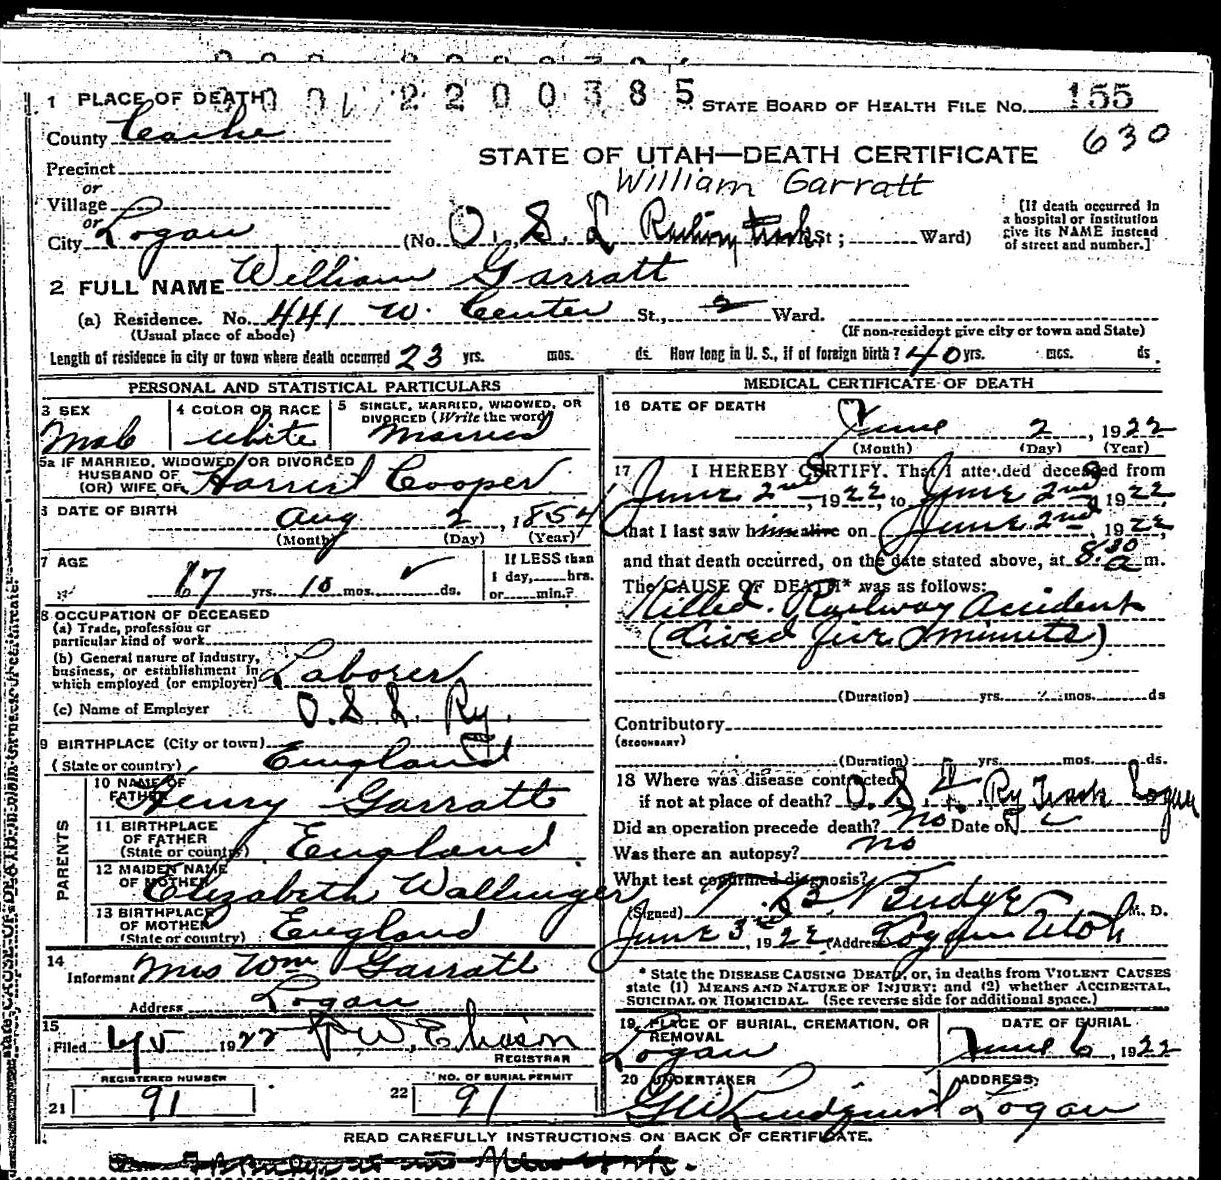 1 PLACE OF DEATH 2200385 STATE BOARD OF HEALTH FILE No. 155
County Cache 630
STATE OF UTAH—DEATH CERTIFICATE
Precinct
William Garratt
or
Village
or
City Logan (No. O. S. L Railway track St; Ward) [If death occurred in a hospital or institution give its NAME instead of street and number.]
2 FULL NAME William Garratt
(a) Residence. No. 441 W. Center St., 2 Ward.
(Usual place of abode) (If non-resident give city or town and State)
Length of residence in city or town where death occurred 23 yrs. mos. ds. How long in U. S., if of foreign birth? 40 yrs. mos. ds.
PERSONAL AND STATISTICAL PARTICULARS
3 SEX 4 COLOR OR RACE 5 SINGLE, MARRIED, WIDOWED, OR DIVORCED (Write the word)
Male White Married
5a IF MARRIED, WIDOWED, OR DIVORCED
HUSBAND OF
(OR) WIFE OF Harriet Cooper
6 DATE OF BIRTH
Aug 2, 1854
(Month) (Day) (Year)
7 AGE If LESS than
67 yrs. 10 mos. ds. 1 day, hrs.
or min.?
8 OCCUPATION OF DECEASED
(a) Trade, profession or
particular kind of work
(b) General nature of industry,
business, or establishment in
which employed (or employer) Laborer
(c) Name of Employer O. S. L. Ry.
9 BIRTHPLACE (City or town)
(State or country) England
PARENTS
10 NAME OF
FATHER Henry Garratt
11 BIRTHPLACE
OF FATHER
(State or country) England
12 MAIDEN NAME
OF MOTHER Elizabeth Wallinger
13 BIRTHPLACE
OF MOTHER
(State or country) England
14
Informant Mrs Wm Garratt
Address Logan
15
Filed 6/5 1922
REGISTRAR
REGISTERED NUMBER NO. OF BURIAL PERMIT
21 91 22 91
MEDICAL CERTIFICATE OF DEATH
16 DATE OF DEATH
June 2, 1922
(Month) (Day) (Year)
17 I HEREBY CERTIFY. That I attended deceased from
June 2nd, 1922, to June 2nd, 1922
that I last saw him alive on June 2nd, 1922,
and that death occurred, on the date stated above, at 8:30 a m.
The CAUSE OF DEATH* was as follows:
Killed. Railway Accident
(Lived five minutes)
(Duration) yrs. mos. ds
Contributory
(SECONDARY)
(Duration) yrs. mos. ds.
18 Where was disease contracted
if not at place of death? O. S. L. Ry Track Logan
Did an operation precede death? No. Date of
Was there an autopsy? no
What test confirmed diagnosis?
(Signed) T. B. Budge M. D.
June 3rd, 1922 (Address) Logan Utah
* State the DISEASE CAUSING DEATH, or, in deaths from VIOLENT CAUSES
state (1) MEANS AND NATURE OF INJURY; and (2) whether ACCIDENTAL,
SUICIDAL OR HOMICIDAL. (See reverse side for additional space.)
19 PLACE OF BURIAL, CREMATION, OR REMOVAL DATE OF BURIAL
Logan June 6, 1922
20 UNDERTAKER ADDRESS,
G W Lindquist Logan
READ CAREFULLY INSTRUCTIONS ON BACK OF CERTIFICATE.